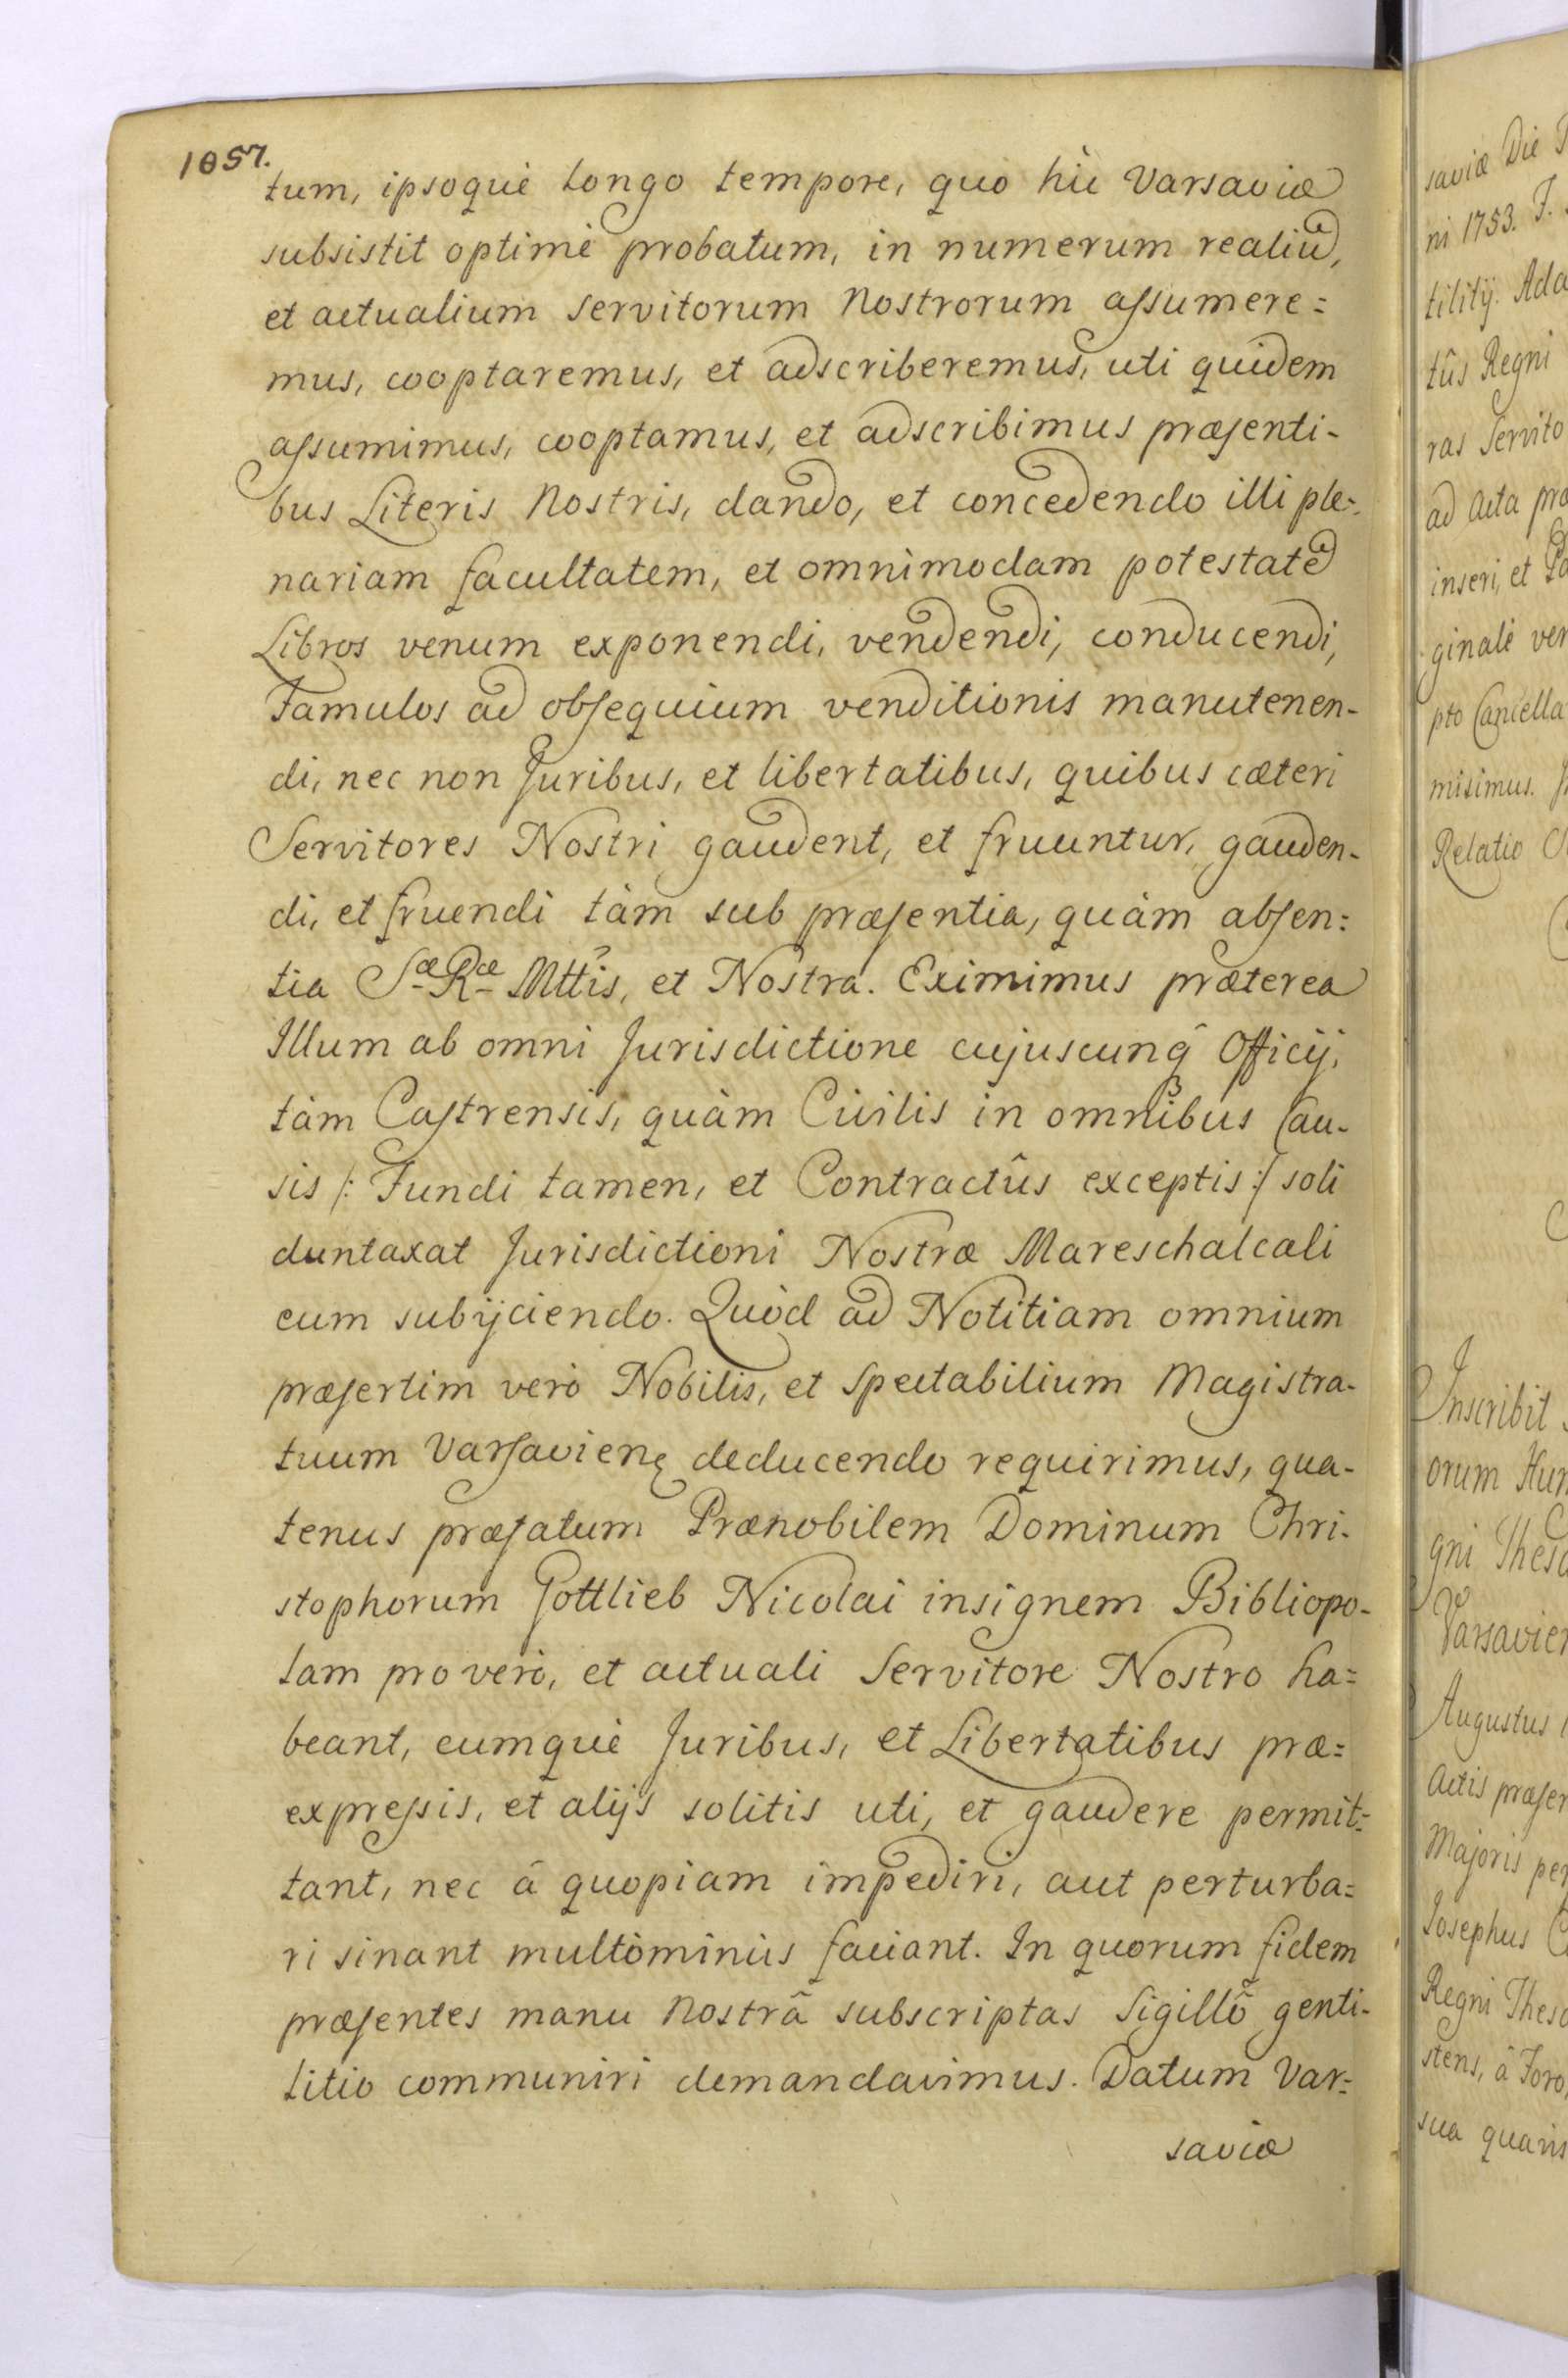 1057.
tum, ipsoquè longo tempore, quo hìc Varsaviæ
subsistit optimè probatum, in numerum realiū,
et actualium servitorum Nostrorum aſsumere=
mus, cooptaremus, et adscriberemus, uti quidem
aſsumimus, cooptamus, et adscribimus præſenti-
bus Literis Nostris, dando, et concedendo illi ple=
nariam facultatem, et omnimodam potestatē
Libros venum exponendi, vendendi, conducendi,
Famulos ad obſequium venditionis manutenen-
di, nec non Juribus, et libertatibus, quibus cæteri
Servitores Nostri gaudent, et fruuntur, gauden-
di, et fruendi tàm sub præſentia, quàm abſen=
tia Sæ Ræ Mttis, et Nostra. Eximimus præterea
Illum ab omni Jurisdictione cujuscunq̂ Officij,
tàm Caſtrensis, quàm Civilis in omnibus Cau-
sis /: Fundi tamen, et Contractûs exceptis :/ soli
duntaxat Jurisdictioni Nostræ Mareschalcali
eum subijciendo. Quòd ad Notitiam omnium
præſertim verò Nobilis, et Spectabilium Magistra-
tuum Varſavienę deducendo requirimus, qua-
tenus præfatum Prænobilem Dominum Chri-
stophorum Gottlieb Nicolai insignem Bibliopo-
lam pro verò, et actuali Servitore Nostro ha=
beant, eumquè Juribus, et Libertatibus præ=
expreſsis, et alijs solitis uti, et gaudere permit=
tant, nec â quopiam impediri, aut perturba=
ri sinant multòminùs faciant. In quorum fidem
præſentes manu Nostrâ subscriptas Sigillô genti-
litio communiri demandavimus. Datum Var=
saviæ
saviæ Die
ni 1753. J.
tilitij. Ada
tûs Regni
ras Servito
ad Acta pro
inseri, et
ginalè ver
pto Cancella
misimus.
Relatio
Inscribit
orum Hum
gni Thesa
Varsavien
Augustus
Actis præſen
Majoris per
Josephus
Regni Thesa
stens, â Foro,
sua quavis